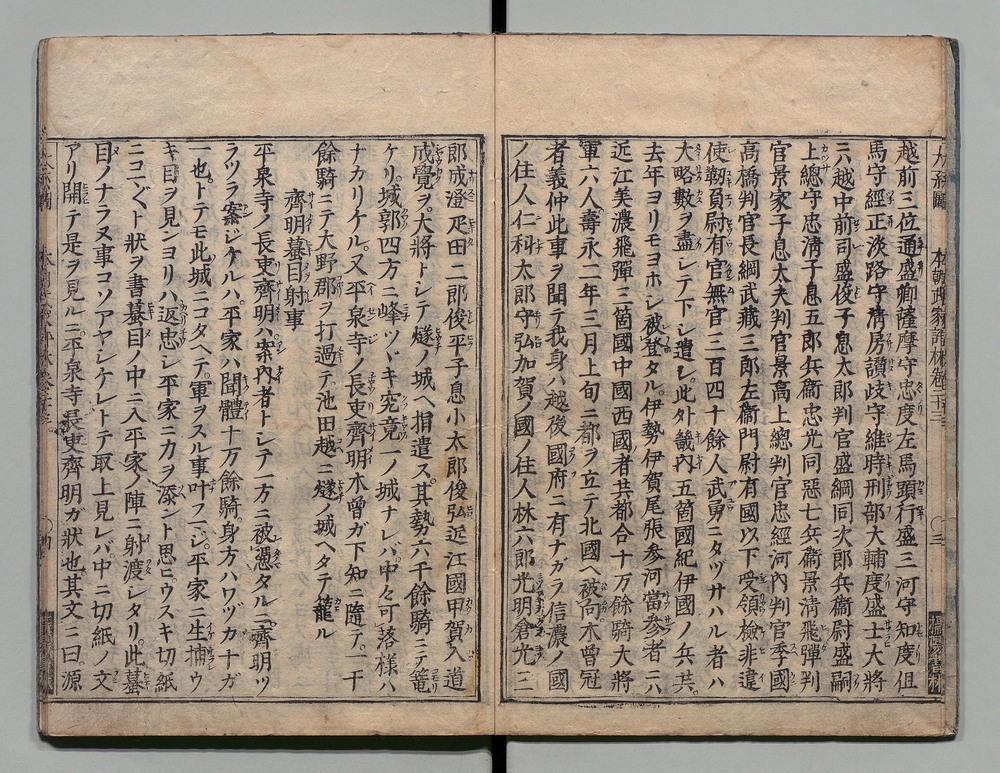 越前三位通盛卿薩摩守忠度左馬頭行盛三河守知度但
馬守經正淡路守淸房讃岐守維時刑部大輔度盛士大將
ニハ越中前司盛俊子息太郎判官盛綱同次郎兵衞尉盛嗣
上總守忠淸子息五郎兵衞忠光同惡七兵衞景淸飛彈判
官景家子息大夫判官景髙上總判官忠經河内判官季國
髙橋判官長綱武藏三郎左衞門尉有國以下受領檢非違
使靱負尉有官無官三百四十餘人武勇ニタヅサハル者ハ
大略數ヲ盡シテ下シ遣シ此外畿内五箇國紀伊國ノ兵共
去年ヨリモヨホシ被登タル伊勢伊賀尾張參河當參者ニハ
近江美濃飛彈三箇國中國西國者共都合十万餘騎大將
軍六人壽永二年三月上旬ニ都ヲ立テ北國ヘ被向木曽冠
者義仲此事ヲ聞テ我身ハ越後國府ニ有ナガラ信濃ノ國
ノ住人仁科太郎守弘加賀ノ國ノ住人林六郎光明倉光三
郎成澄疋田二郎俊平子息小太郎俊弘近江國甲賀入道
成覺ヲ大將トシテ燧ノ城ヘ指遣ス其勢六千餘騎ニテ籠
ケリ城郭四方ニ峰ツヾキ究竟一ノ城ナレバ中々可落様ハ
ナカリケル又平泉寺ノ長吏齊明木曽ガ下知ニ隨テ一千
餘騎ニテ大野郡ヲ打過テ池田越ニ燧ノ城ヘタテ籠ル
齊明蟇目射事
平泉寺ノ長吏齊明ハ案内者トシテ一方ニ被憑タルニ齊明ツ
ラツラ案ジケルハ平家ハ聞體十万餘騎身方ハワヅカナガ
一也トテモ此城ニコタヘテ軍ヲスル事叶フベシ平家ニ生捕ウ
キ目ヲ見ンヨリハ返忠シ平家ニカヲ添ント思ヒウスキ切紙
ニコマ〴〵ト狀ヲ書蟇目ノ中ニ入平家ノ陣ニ射渡シタリ此蟇
目ノナラヌ事コソアヤシケレトテ取上見レバ中ニ切紙ノ文
アリ開テ是ヲ見ルニ平泉寺長吏齊明ガ狀也其文ニ曰源